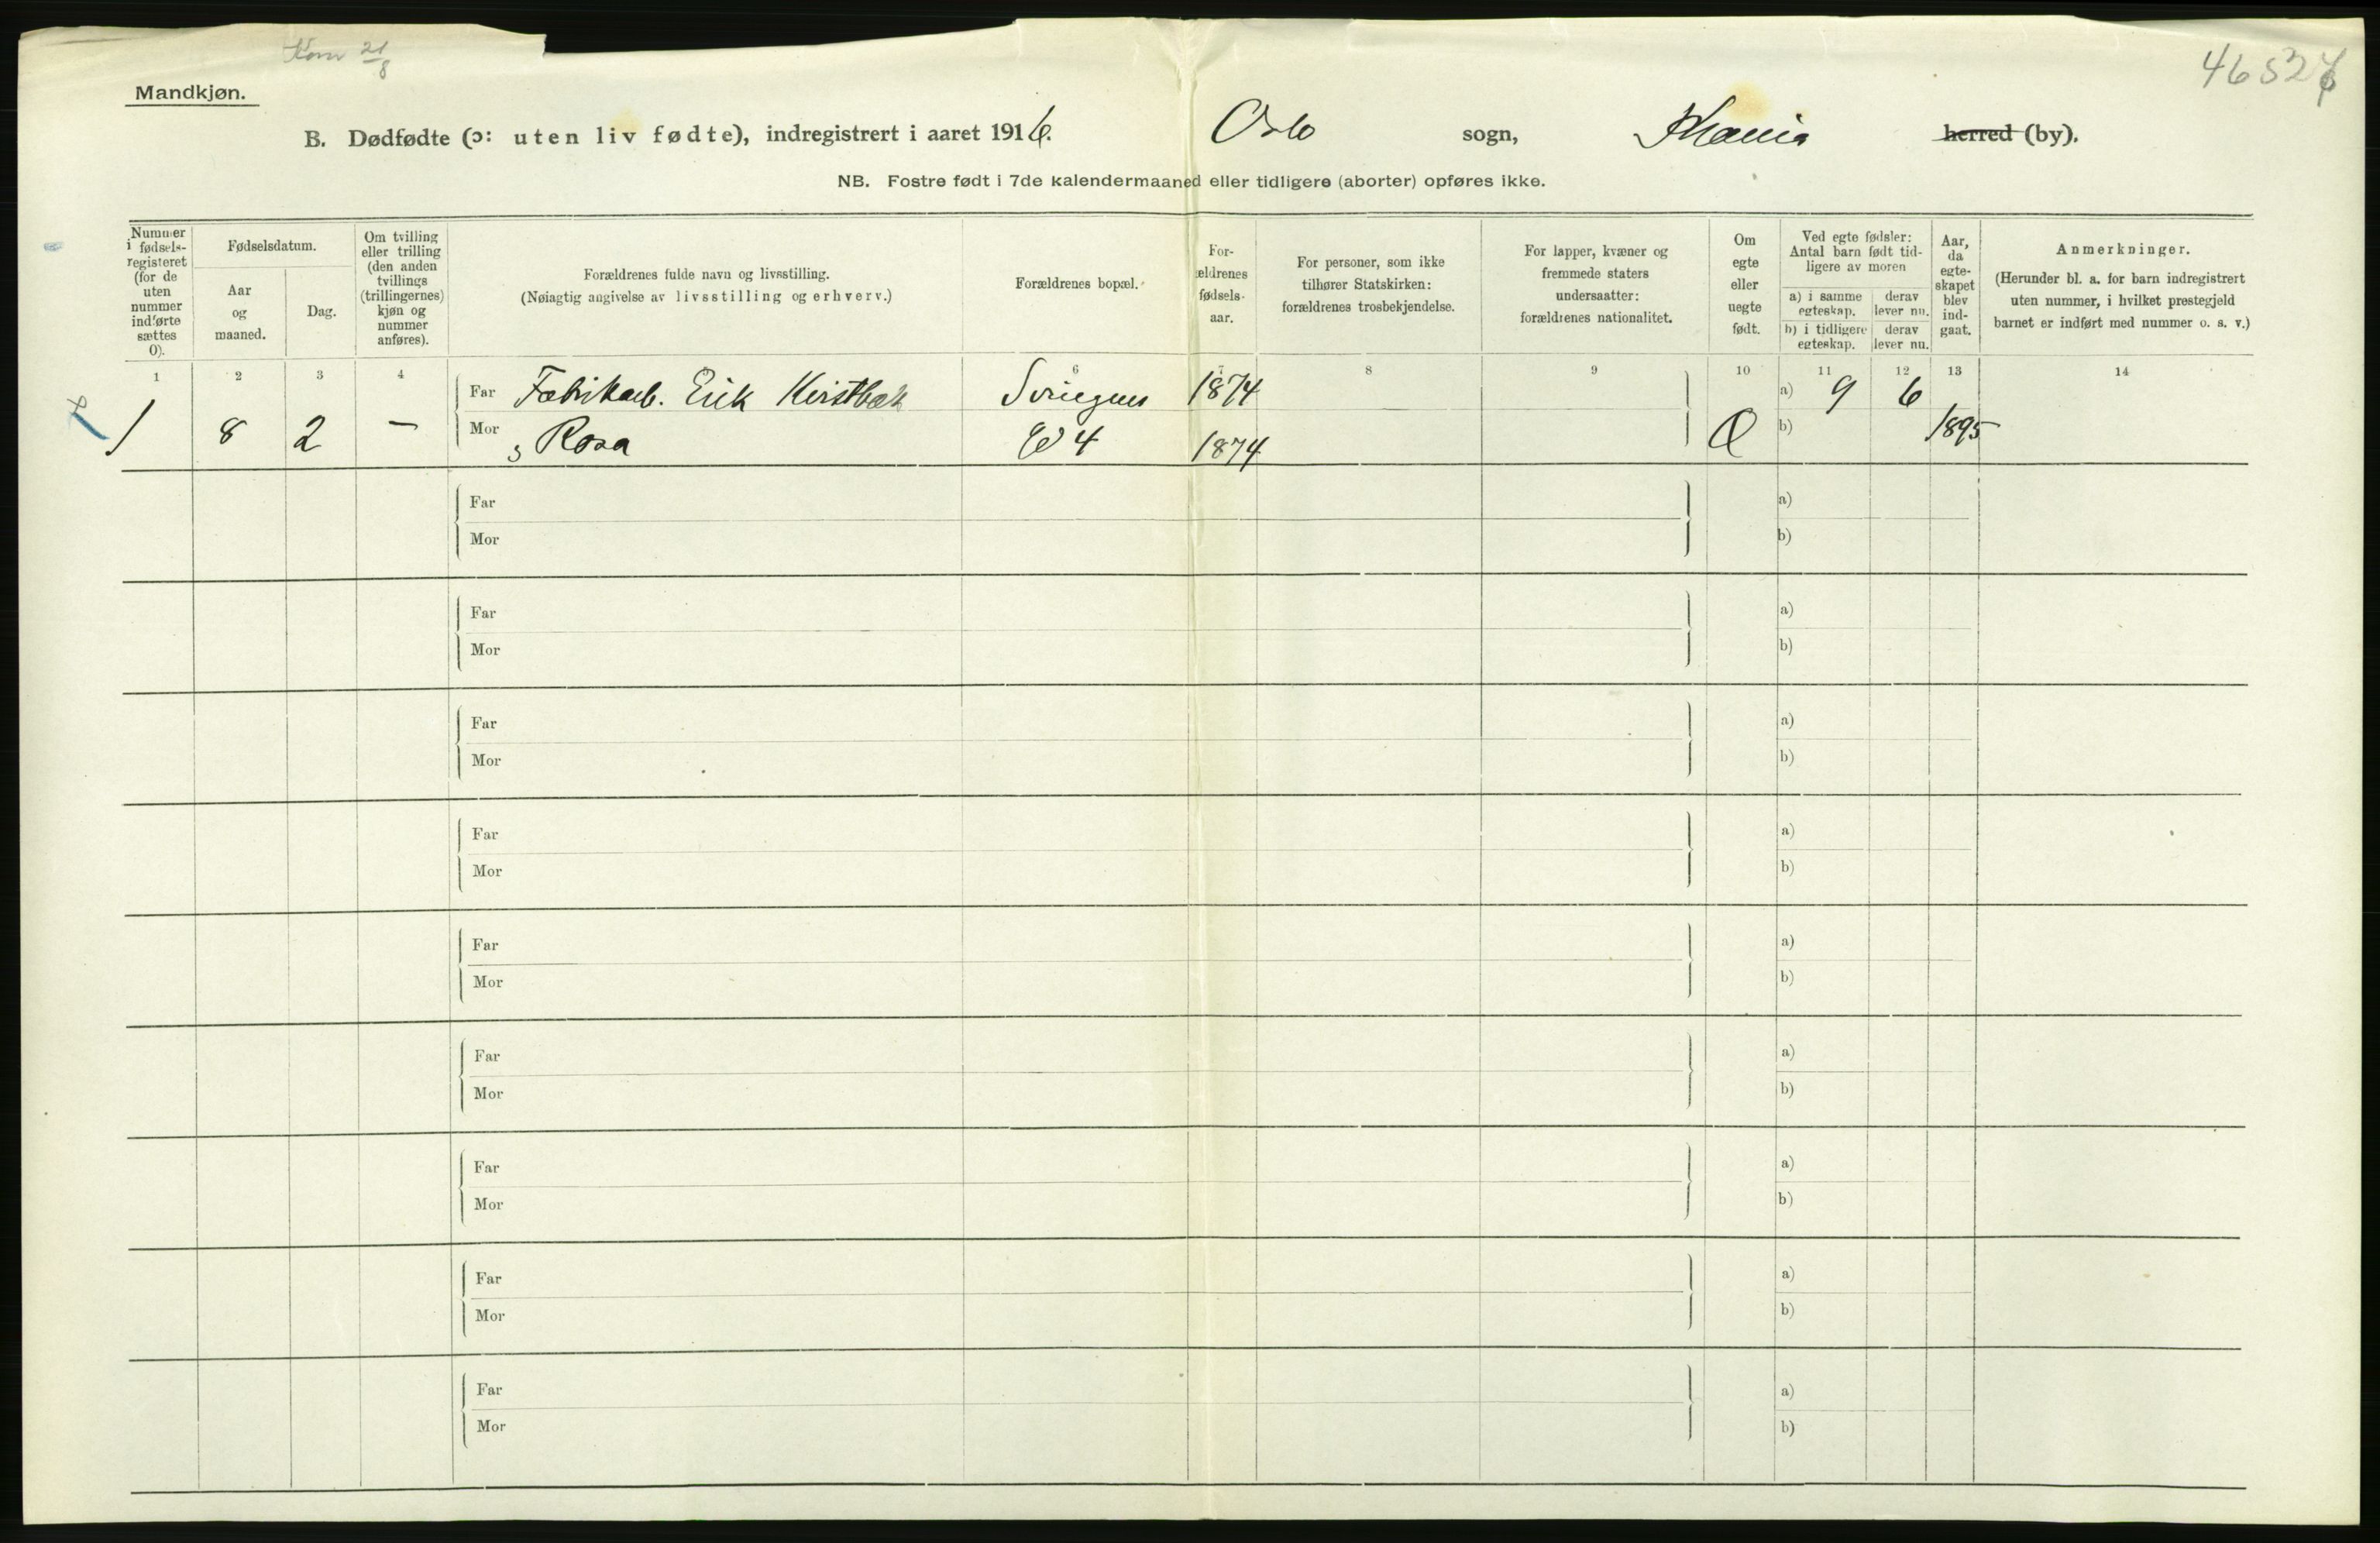 Kom 21/8
4652
Mandkjøn.
B. Dødfødte (ɔ: uten liv fødte), indregistrert i aaret 1916. Oslo sogn, Kr.ania herred (by).
NB. Fostre født i 7de kalendermaaned eller tidligere (aborter) opføres ikke.
Nummer i fødsels-registeret (for de uten nummer indførte sættes 0).
Fødselsdatum.
Aar og maaned.
Dag.
Om tvilling eller trilling (den anden tvillings (trillingernes) kjøn og nummer anføres).
Forældrenes fulde navn og livsstilling.
(Nøiagtig angivelse av livsstilling og erhverv.)
Forældrenes bopæl.
For-ældrenes fødsels-aar.
For personer, som ikke tilhører Statskirken: forældrenes trosbekjendelse.
For lapper, kvæner og fremmede staters undersaatter: forældrenes nationalitet.
Om egte eller uegte født.
Ved egte fødsler: Antal barn født tid-ligere av moren
a) i samme egteskap. derav lever nu.
b) i tidligere egteskap. derav lever nu.
Aar, da egte-skapet blev ind-gaat.
Anmerkninger.
(Herunder bl. a. for barn indregistrert uten nummer, i hvilket prestegjeld barnet er indført med nummer o. s. v.)
1 2 3 4 6 7 8 9 10 11 12 13 14
Far Fabrikarb. Erik 1874 a) 9 6
1 8 2 – Mor Rosa 4 1874 b) 1895
Far a)
Mor b)
Far a)
Mor b)
Far a)
Mor b)
Far a)
Mor b)
Far a)
Mor b)
Far a)
Mor b)
Far a)
Mor b)
Far a)
Mor b)
Far a)
Mor b)